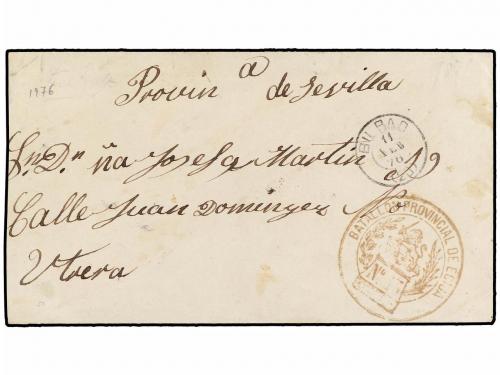 Provinᵃ de Sevilla
1976
BILBAO
11
FEB
76
Sr. Dn. ña Josefa Martin
Calle Juan Dominguez Nº
Utrera
BATALLON PROVINCIAL DE ECIJA
Nº